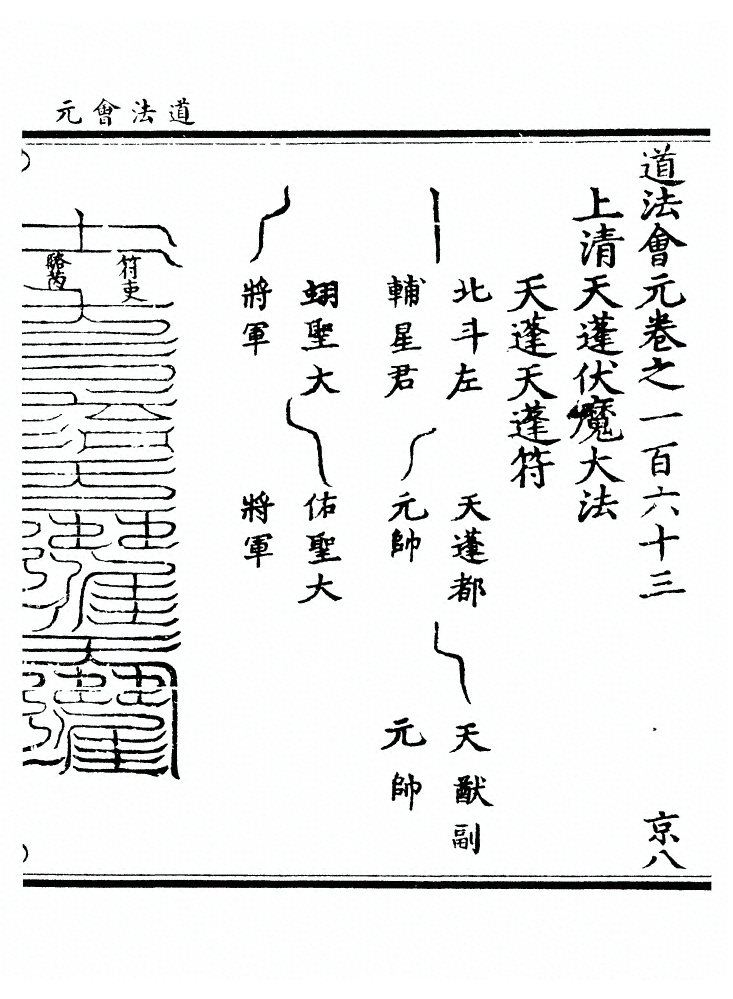 道法會元
道法會元卷之一百六十三
京八
上清天蓬伏魔大法
天蓬天蓬符
北斗左
輔星君
天蓬都
元帥
天猷副
元帥
翊聖大
將軍
佑聖大
將軍
符吏